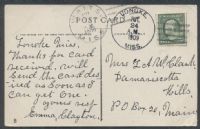 POST CARD
LONOKE,
24
1909
MISS.
Lonoke Miss.
Thanks for Card
received. will
Send the Card des
ired as soon as I
Can get One.
yours resp
Emma Clayton
Mrs F. A. W. Clark
Damariscotta
Mills,
P.O. Box 20, Maine